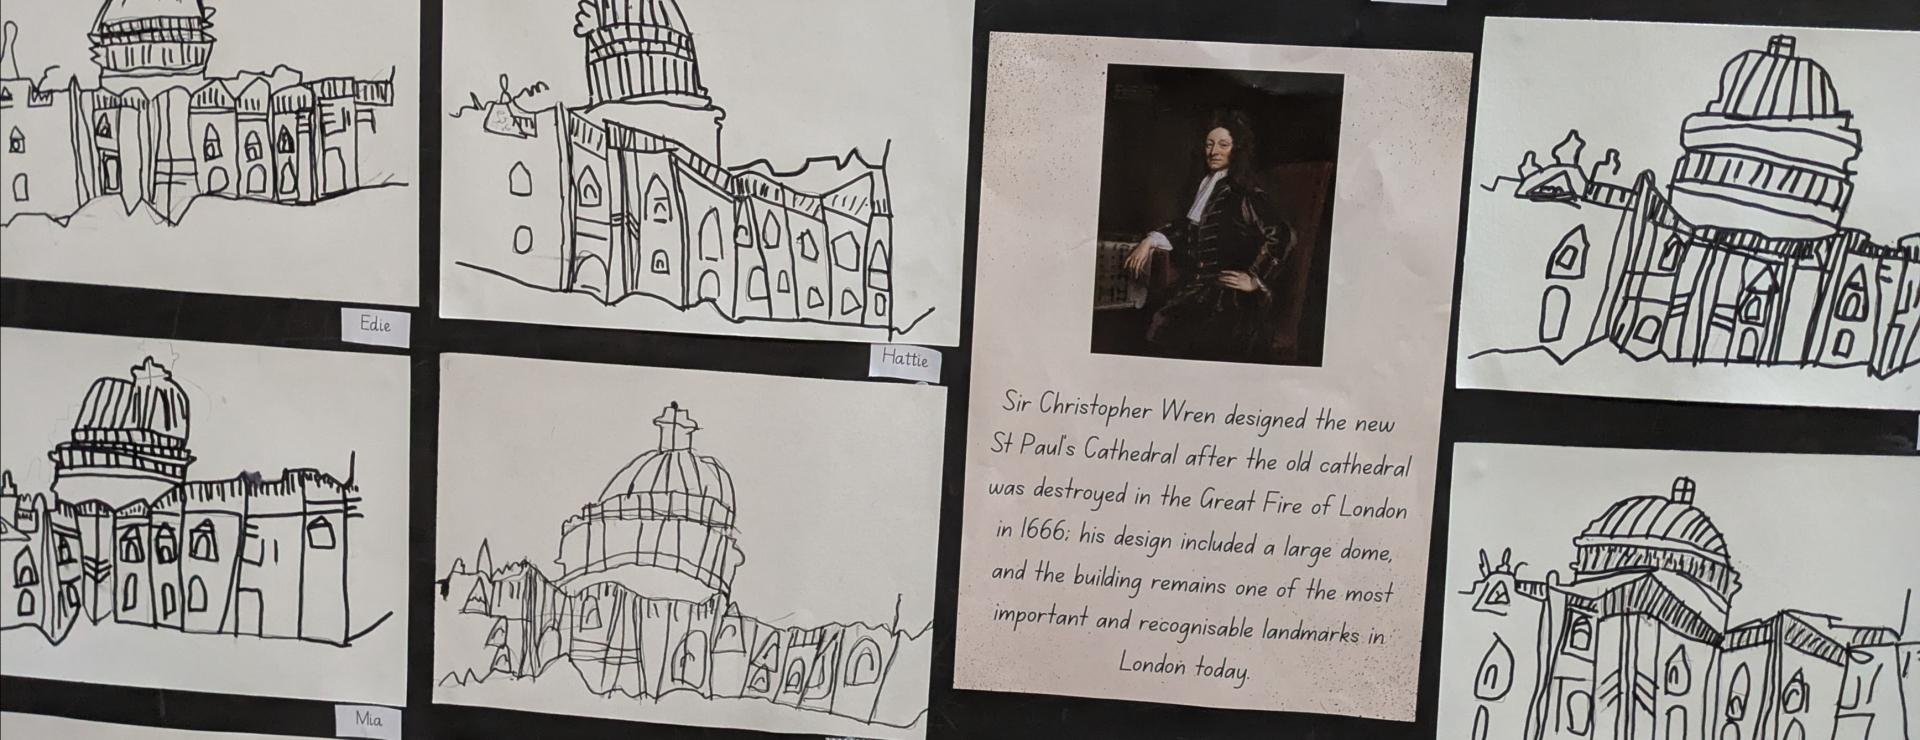 Edie
Hattie
Mia
Sir Christopher Wren designed the new
St Paul's Cathedral after the old cathedral
was destroyed in the Great Fire of London
in 1666; his design included a large dome,
and the building remains one of the most
important and recognisable landmarks in
London today.